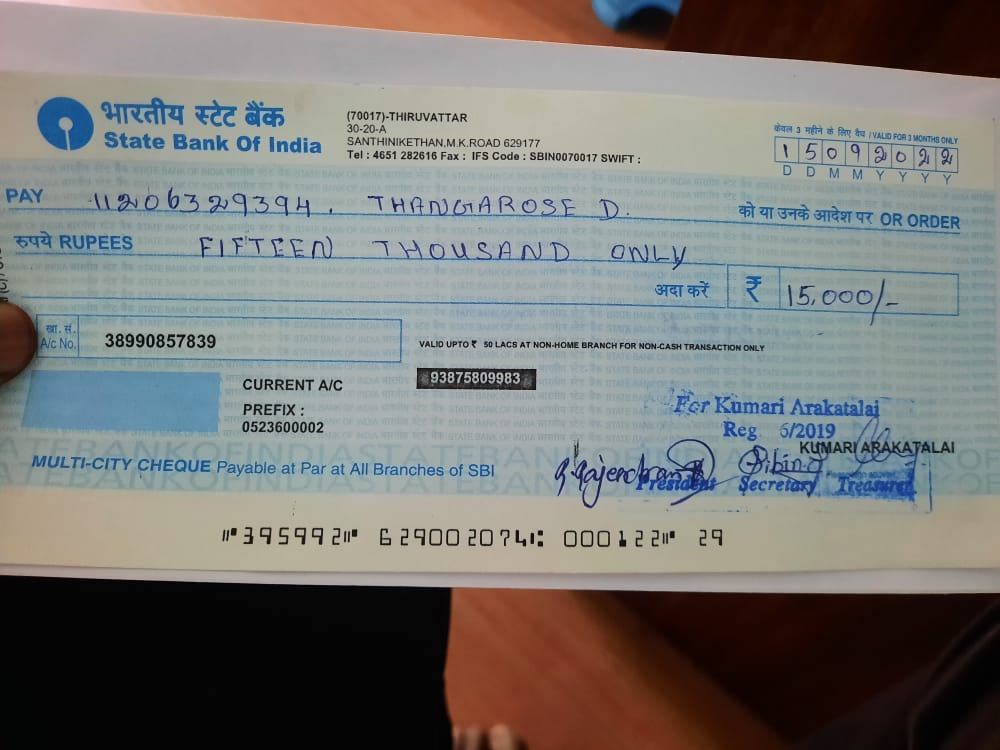 भारतीय स्टेट बैंक
State Bank Of India
(70017)-THIRUVATTAR
30-20-A
SANTHINIKETHAN,M.K.ROAD 629177
Tel : 4651 282616 Fax : IFS Code : SBIN0070017 SWIFT :
केवल 3 महीने के लिए वैध / VALID FOR 3 MONTHS ONLY
1 5 0 9 2 0 2 2
D D M M Y Y Y Y
PAY 11206329394. THANGAROSE D. को या उनके आदेश पर OR ORDER
रुपये RUPEES FIFTEEN THOUSAND ONLY
अदा करें ₹ 15,000/-
खा. सं.
A/c No. 38990857839
VALID UPTO ₹ 50 LACS AT NON-HOME BRANCH FOR NON-CASH TRANSACTION ONLY
93875809983
CURRENT A/C
PREFIX :
0523600002
For Kumari Arakatalai
Reg 6/2019
KUMARI ARAKATALAI
President Secretary Treasurer
MULTI-CITY CHEQUE Payable at Par at All Branches of SBI
⑈395992⑈ 629002074⑆ 000122⑈ 29